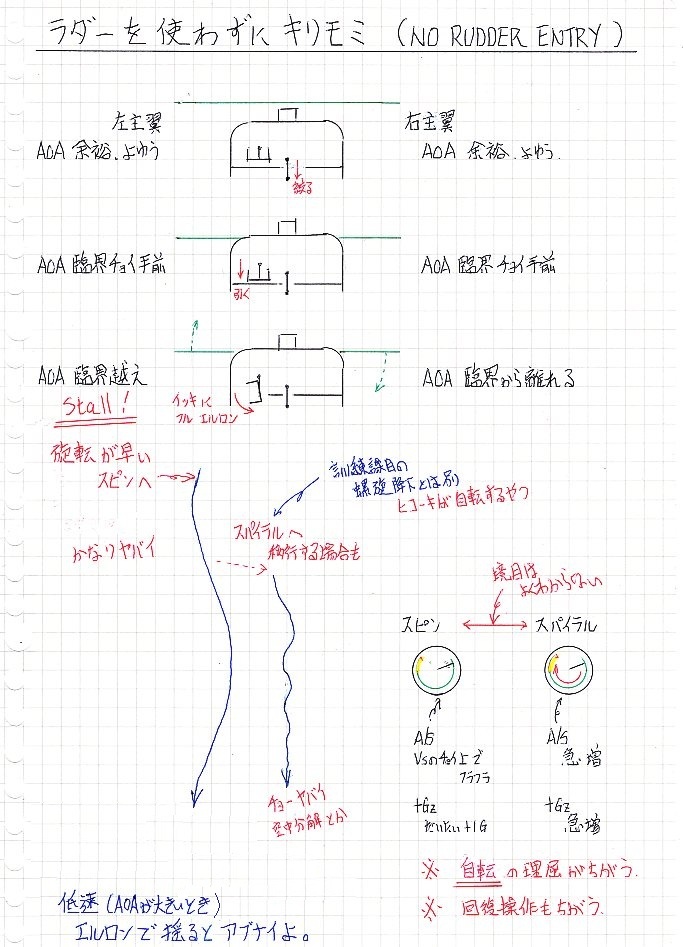 ラダーを使わずにキリモミ (NO RUDDER ENTRY)
左主翼
右主翼
AOA 余裕、よゆう
AOA 余裕、よゆう.
絞る
AOA 臨界チョイ手前
AOA 臨界チョイ手前
引く
AOA 臨界越え
AOA 臨界から離れる
Stall!
イッキに
フル エルロン
旋転が早い
スピンへ
訓練課目の
螺旋降下とは別
ヒコーキが自転するやつ
スパイラルへ
移行する場合も
かなりヤバイ
境目は
よくわからない
スピン
スパイラル
A/S
Vsのチョイ上で
フラフラ
A/S
急増
+Gz
だいたい+1G
+Gz
急増
チョーヤバイ
空中分解とか
※ 自転の理屈がちがう.
※ 回復操作もちがう.
低速(AOAが大きいとき)
エルロンで揺るとアブナイよ。